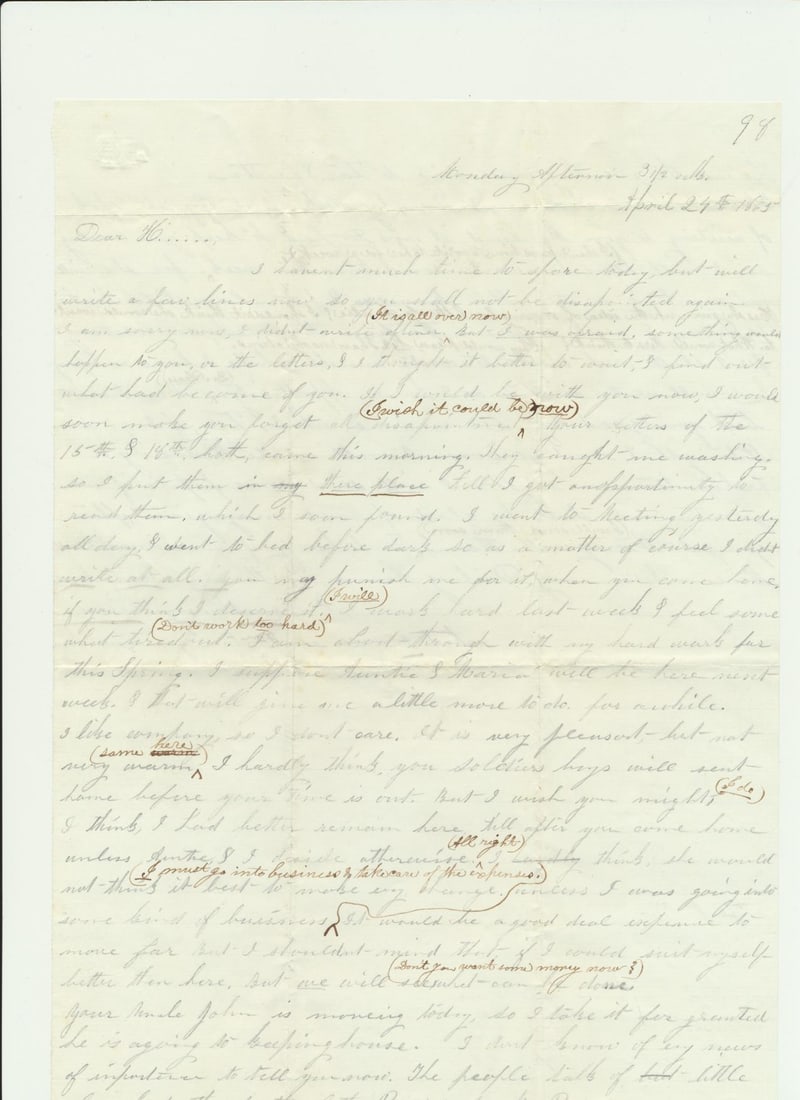 98
Monday Afternoon 3 1/2 o'clk.
April 24th 1865
Dear H......,
I havent much time to spare today, but will
write a few lines now so you shall not be disapointed again
(It is all over now)
I am sorry now, I didnt write oftener. But I was afraid, something would
happen to you, or the letters, & I thought it better to wait, & find out
what had become of you. If I could be with you now, I would
(I wish it could be now)
soon make you forget all disapointment Your letters of the
15th, & 18th, both, came this morning. They caught me washing.
so I put them in my there place till I got an opportunity to
read them. which I soon found. I went to Meeting yesterdy
all day, & went to bed before dark so as a matter of course I didt
write at all. you may punish me for it, when you come home,
(I will)
if you think I deserve it. work hard last week I feel some
(Dont work too hard)
what tired out. I am about through with my hard work for
this Spring. I suppose Auntie & Maria will be here next
week. & that will give me a little more to do. for awhile.
I like company, so I dont care. It is very pleasant but not
(same warm here)
very warm, I hardly think, you soldiers boys will sent
home before your time is out. But I wish you might,
(I do)
I think, I had better remain here till after you come home
(All right)
unless, Auntie & I decide otherwise. I hardly think, she would
(I must go into business & take care of the expenses.)
not think it best to make eny change. unless I was going into
some kind of buisness, It would be a good deal expence to
move far But I shouldnt mind that, if I could suit myself
(Dont you want some money now?)
better then here. But we will see what can be done.
Your Uncle John is moveing today, so I take it for granted
he is agoing to keeping house. I dont know of eny news
of importance to tell you now. The people talk of but little